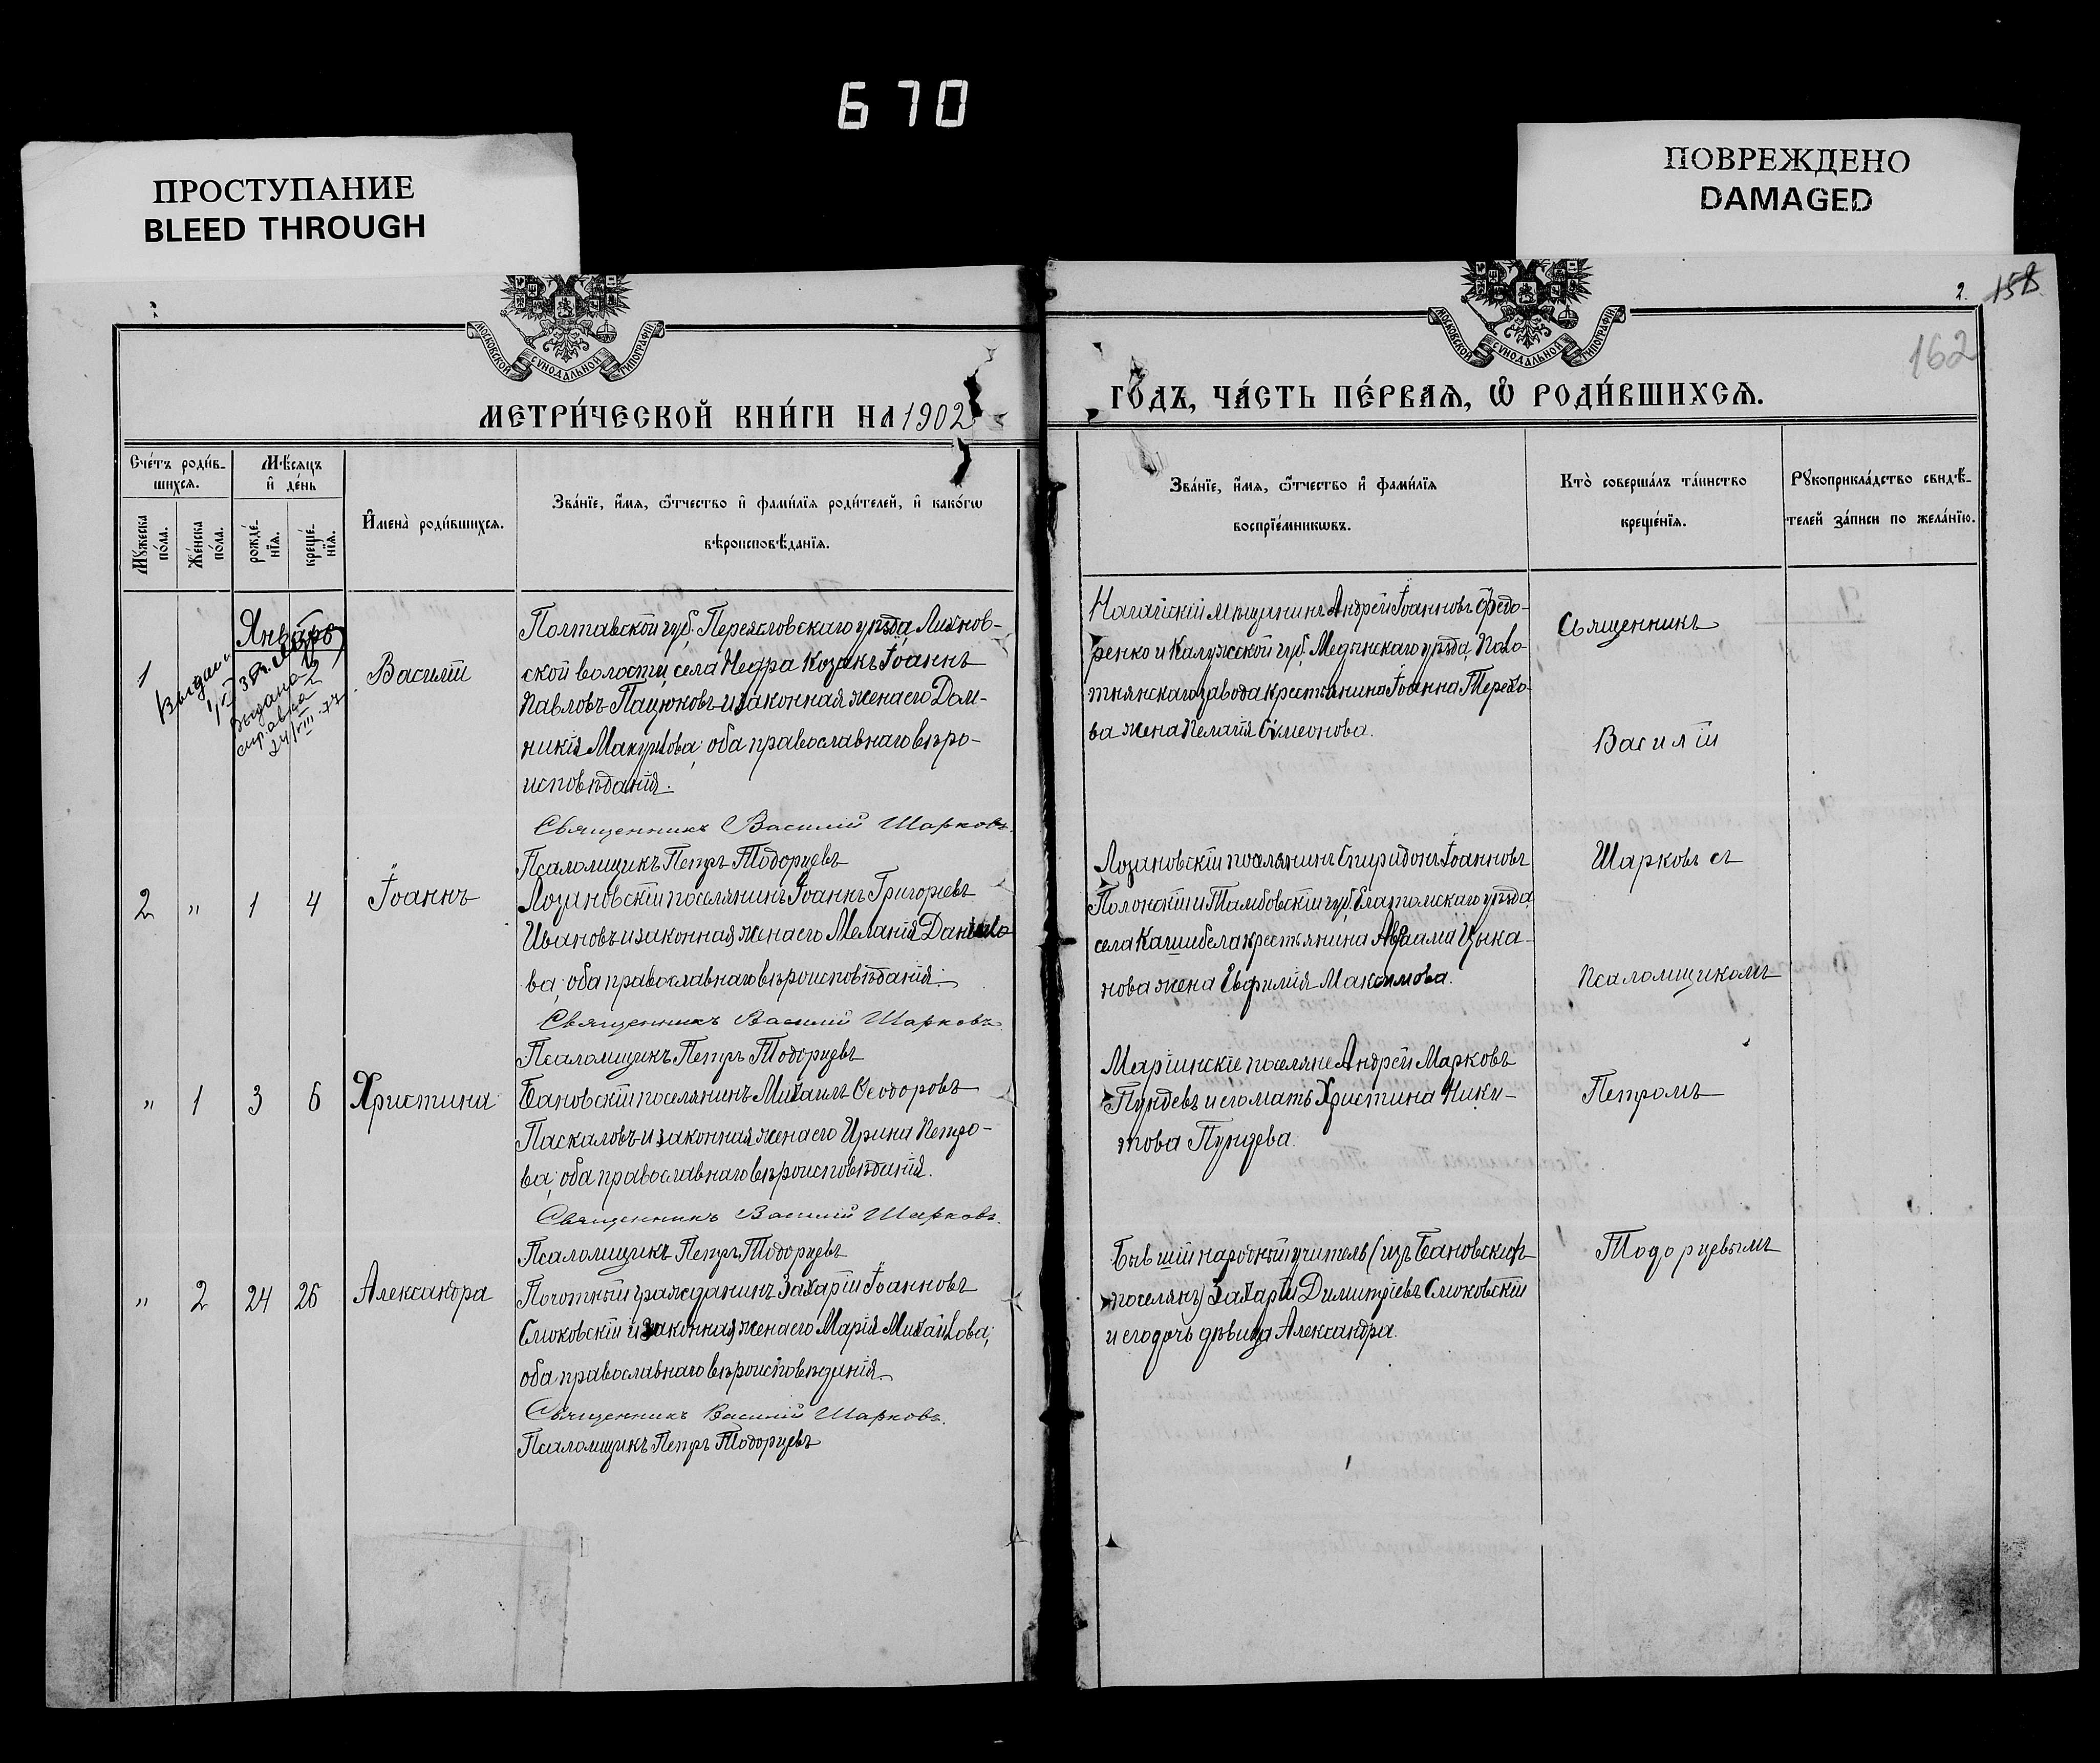 670
ПРОСТУПАНИЕ
BLEED THROUGH
ПОВРЕЖДЕНО
DAMAGED
МОСКОВСКОЙ СѴНОДАЛЬНОЙ ТИПОГРАФІИ
МОСКОВСКОЙ СѴНОДАЛЬНОЙ ТИПОГРАФІИ
2.
158
162
МЕТРИ́ЧЕСКОЙ КНИ́ГИ НА 1902
ГОДЪ, ЧА́СТЬ ПЕ́РВАѦ, Ѡ҆ РОДИ́ВШИХСѦ.
Сче́тъ роди́в-
шихсѧ.
Мѣ́сѧцъ
и҆ де́нь
Мꙋ́жеска
по́ла.
Же́нска
по́ла.
рожде́-
нїѧ.
креще́-
нїѧ.
И҆мена̀ роди́вшихсѧ.
Зва́нїе, и҆́мѧ, ѻ҆́тчество и҆ фами́лїѧ роди́телей, и҆ како́гѡ
вѣроисповѣ́данїѧ.
Зва́нїе, и҆́мѧ, ѻ҆́тчество и҆ фами́лїѧ
воспрїе́мникѡвъ.
Кто̀ соверша́лъ та́инство
креще́нїѧ.
Рꙋкоприкла́дство свидѣ́-
телей за́писи по жела́нїю.
Январь
1
Выдана
справка
24/VIII-77
Василій
Полтавской губ. Переясловскаго уѣзда Лихнов-
ской волости, села Недра козакъ Іоаннъ
Павловъ Пацюковъ и законная жена его Дом-
никія Макурова; оба православнаго вѣро-
исповѣданія.
Священникъ Василій Шарковъ.
Псаломщикъ Петръ Тодорцевъ
Ногайскій мѣщанинъ Андрей Іоанновъ Федо-
ренко и Калужской губ. Медынскаго уѣзда, Поло-
тнянскаго завода крестьянина Іоанна Терехо-
ва жена Пелагія Симеонова.
Священникъ
Василій
2 " 1 4
Іоаннъ
Лозановскій поселянинъ Іоаннъ Григорьевъ
Ивановъ и законная жена его Меланія Данило-
ва; оба православнаго вѣроисповѣданія.
Священникъ Василій Шарковъ
Псаломщикъ Петръ Тодорцевъ
Лозановскій поселянинъ Спиридонъ Іоанновъ
Полонскій и Тамбовскій губ. Елатомскаго уѣзда,
села крестьянина Авраама Цыка-
нова жена Евфимія Максимова.
Шарковъ съ
Псаломщикомъ
" 1 3 6
Христина
Бановскій поселянинъ Михаилъ Ѳеодоровъ
Паскаловъ и законная жена его Ирина Петро-
ва; оба православнаго вѣроисповѣданія.
Священникъ Василій Шарковъ.
Псаломщикъ Петръ Тодорцевъ
Маріинскіе поселяне Андрей Марковъ
Пундевъ и его мать Христина Ники-
това Пундева.
Петромъ
" 2 24 26
Александра
Почотный гражданинъ Захарій Іоанновъ
Смоковскій и законная жена его Марія Михайлова;
оба православнаго вѣроисповѣданія
Священникъ Василій Шарковъ.
Псаломщикъ Петръ Тодорцевъ
Бывшій народный учитель (изъ Бановскихъ
поселянъ) Захарій Димитріевъ Смоковскій
и его дочь дѣвица Александра.
Тодорцевымъ